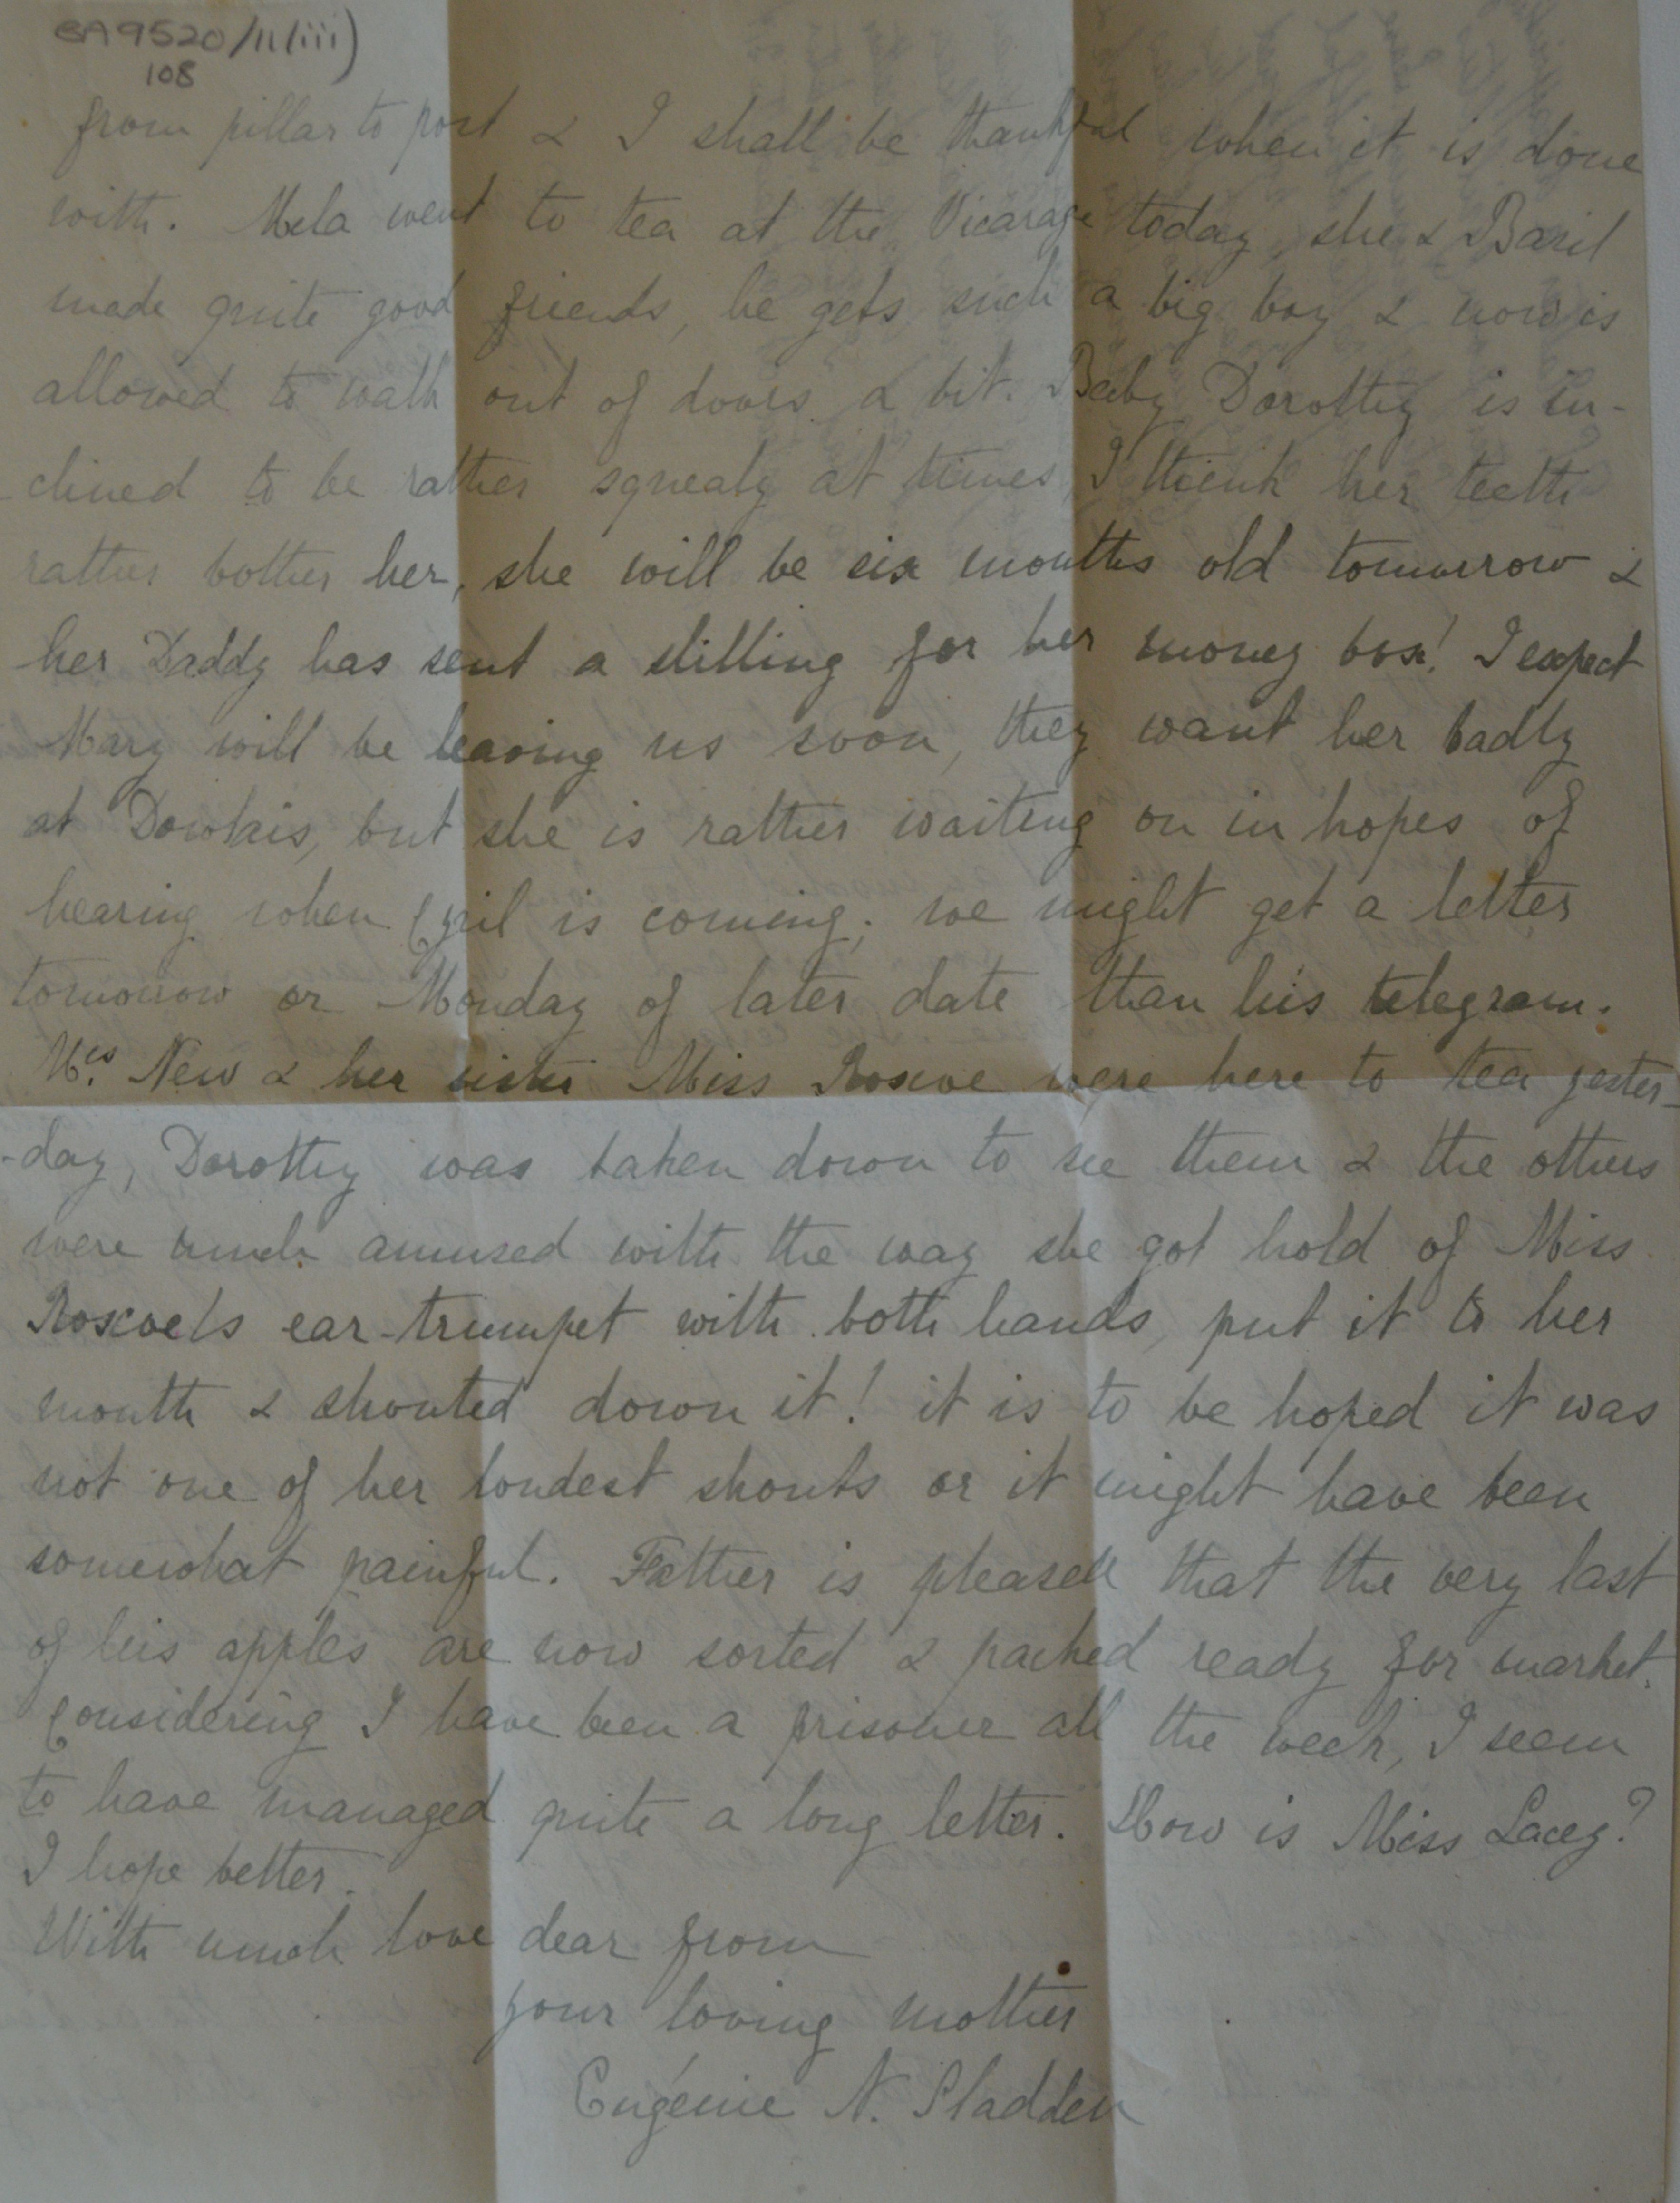 BA9520/11(iii)
108
from pillar to post & I shall be thankful when it is done
with. Mela went to tea at the Vicarage today, she & Basil
made quite good friends, he gets such a big boy & now is
allowed to walk out of doors a bit. Baby Dorothy is in-
-clined to be rather squealy at times, I think her teeth
rather bother her, she will be six months old tomorrow &
her Daddy has sent a shilling for her money box! I expect
Mary will be leaving us soon, they want her badly
at Dowlais, but she is rather waiting on in hopes of
hearing when Cyril is coming; we might get a letter
tomorrow or Monday of later date than his telegram.
Mrs. New & her sister Miss Roscoe were here to tea yester-
-day, Dorothy was taken down to see them & the others
were much amused with the way she got hold of Miss
Roscoe's ear-trumpet with both hands, put it to her
mouth & shouted down it! it is to be hoped it was
not one of her loudest shouts or it might have been
somewhat painful. Father is pleased that the very last
of his apples are now sorted & packed ready for market.
Considering I have been a prisoner all the week, I seem
to have managed quite a long letter. How is Miss Lacey?
I hope better.
With much love dear from
your loving mother
Eugénie N. Sladden